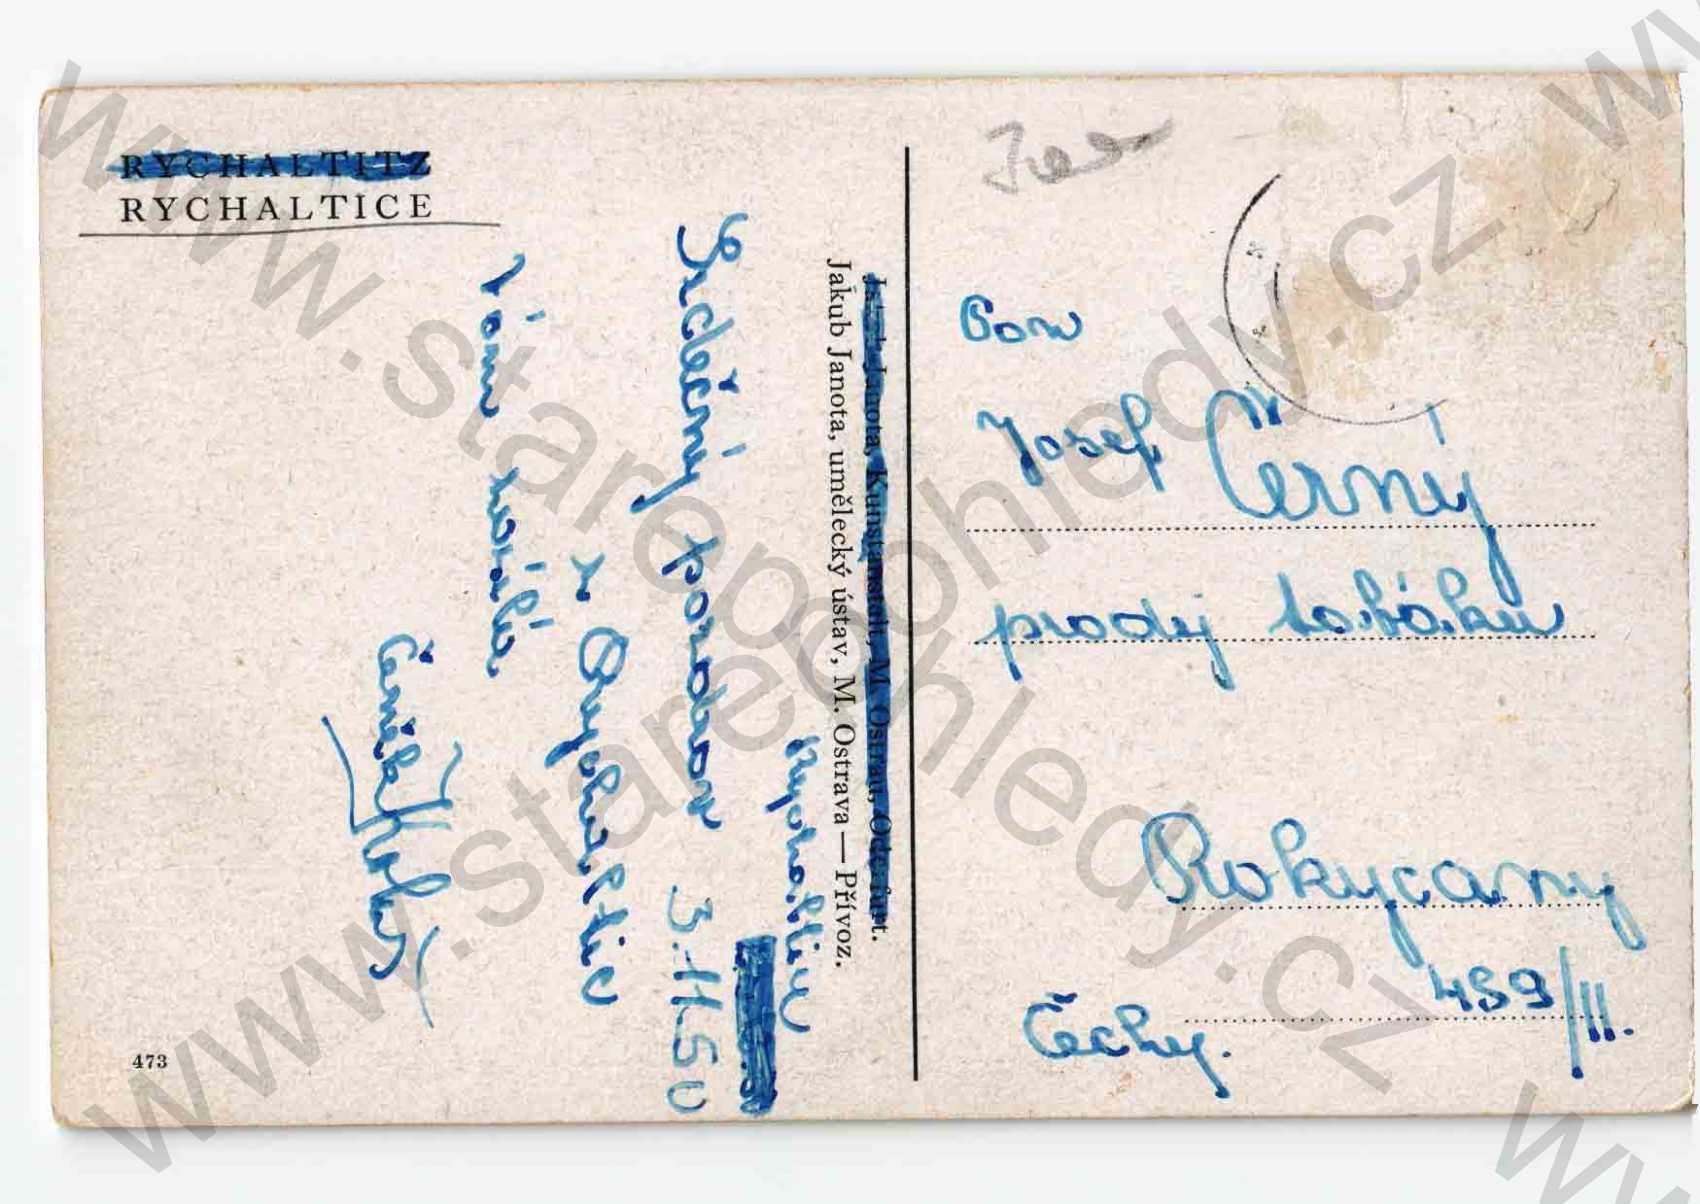 RYCHALTITZ
RYCHALTICE
Jakub Janota, Kunstanstalt, M. Ostrau, Oderfurt.
Jakub Janota, umělecký ústav, M. Ostrava — Přívoz.
Rychaltice
3.11.50
Srdečný pozdrav
z Rychaltic
Vám
Čeněk
473
Pan
Josef Černý
prodej tabáku
Rokycany
459/II.
Čechy.
www.starepohledy.cz
www.starepohledy.cz